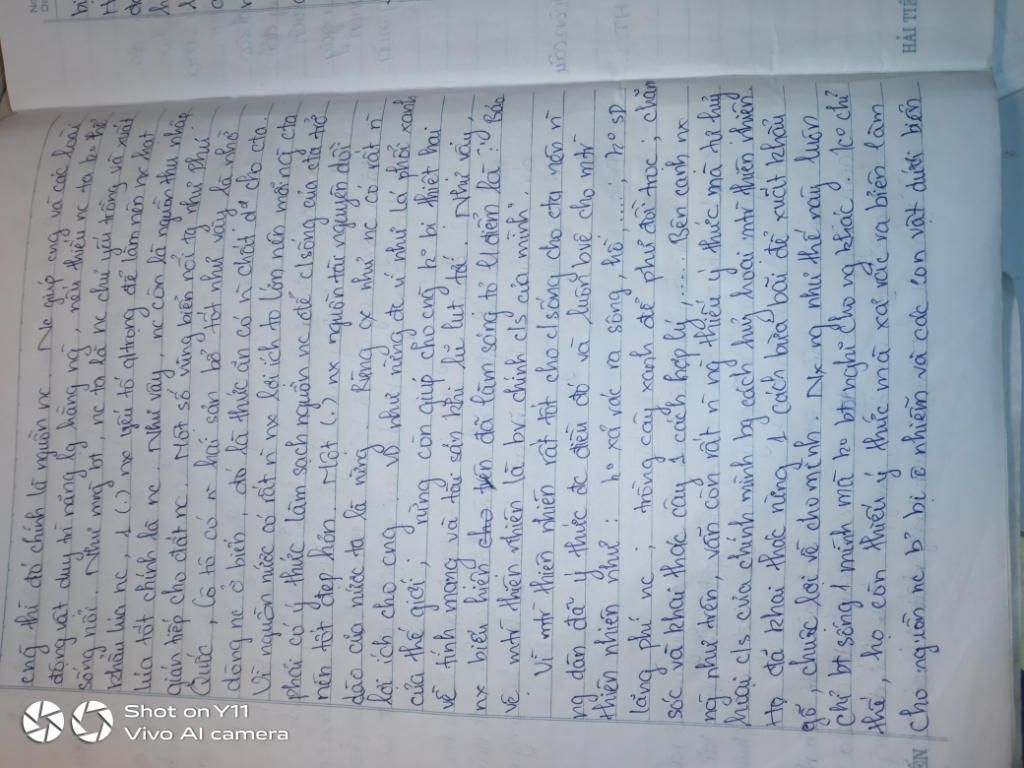 cng thì đó chính là nguồn nc. Nc giúp cng và các loài
động vật duy trì năng lg hằng ng, nếu thiếu nc ta ko thể
sống nổi. Như mọi ng bt, nc ta là nc chủ yếu trồng và xuất
khẩu lúa nc, 1 (.) nx yếu tố qtrong để làm nên nc hạt
lúa tốt chính là nc. Như vậy, nc còn là nguồn thu nhập
gián tiếp cho đất nc. Một số vùng biển nổi tg như Phú
Quốc, Cô tô có n hải sản bổ tốt như vậy là nhờ
dòng nc ở biển, đó là thức ăn có n chất d² cho cta.
Vì nguồn nước có rất n nx lợi ích to lớn nên mỗi ng cta
phải có ý thức làm sạch nguồn nc để c/sống của cta trở
nên tốt đẹp hơn. Một (.) nx nguồn tài nguyên dồi
dào của nước ta là rừng. Rừng cx như nc có rất n
lợi ích cho cng. Ví như rừng đc ví như lá phổi xanh
của thế giới; rừng còn giúp cho cng ko bị thiệt hại
về tính mạng và tài sản khi lũ lụt tới. Như vậy,
nx biểu hiện đã làm sáng tỏ luận điểm là: "Bảo
vệ mtr thiên nhiên là bv chính c/s của mình"
Vì mtr thiên nhiên rất tốt cho c/sống cho cta nên n
ng dân đã ý thức đc điều đó và luôn bvê cho mtr
thiên nhiên như: ko xả rác ra sông, hồ,.....; ko sp
lãng phí nc; trồng cây xanh để phủ đồi trọc; chăm
sóc và khai thác cây 1 cách hợp lý,..... Bên cạnh nx
ng phát triển, vẫn còn rất n ng thiếu ý thức mà tự huỷ
hoại c/s của chính mình bg cách huỷ hoại mtr thiên nhiên.
Họ đã khai thác rừng 1 cách bừa bãi để xuất khẩu
gỗ, chuộc lợi về cho mình. Nx ng như thế này luôn
chỉ bt sống / mình mà ko bt nghĩ cho ng khác. Ko chỉ
thế, họ còn thiếu ý thức mà xả rác ra biển làm
cho nguồn nc bị ô nhiễm và các con vật dưới biển
HẢI TIẾ
Shot on Y11
Vivo AI camera